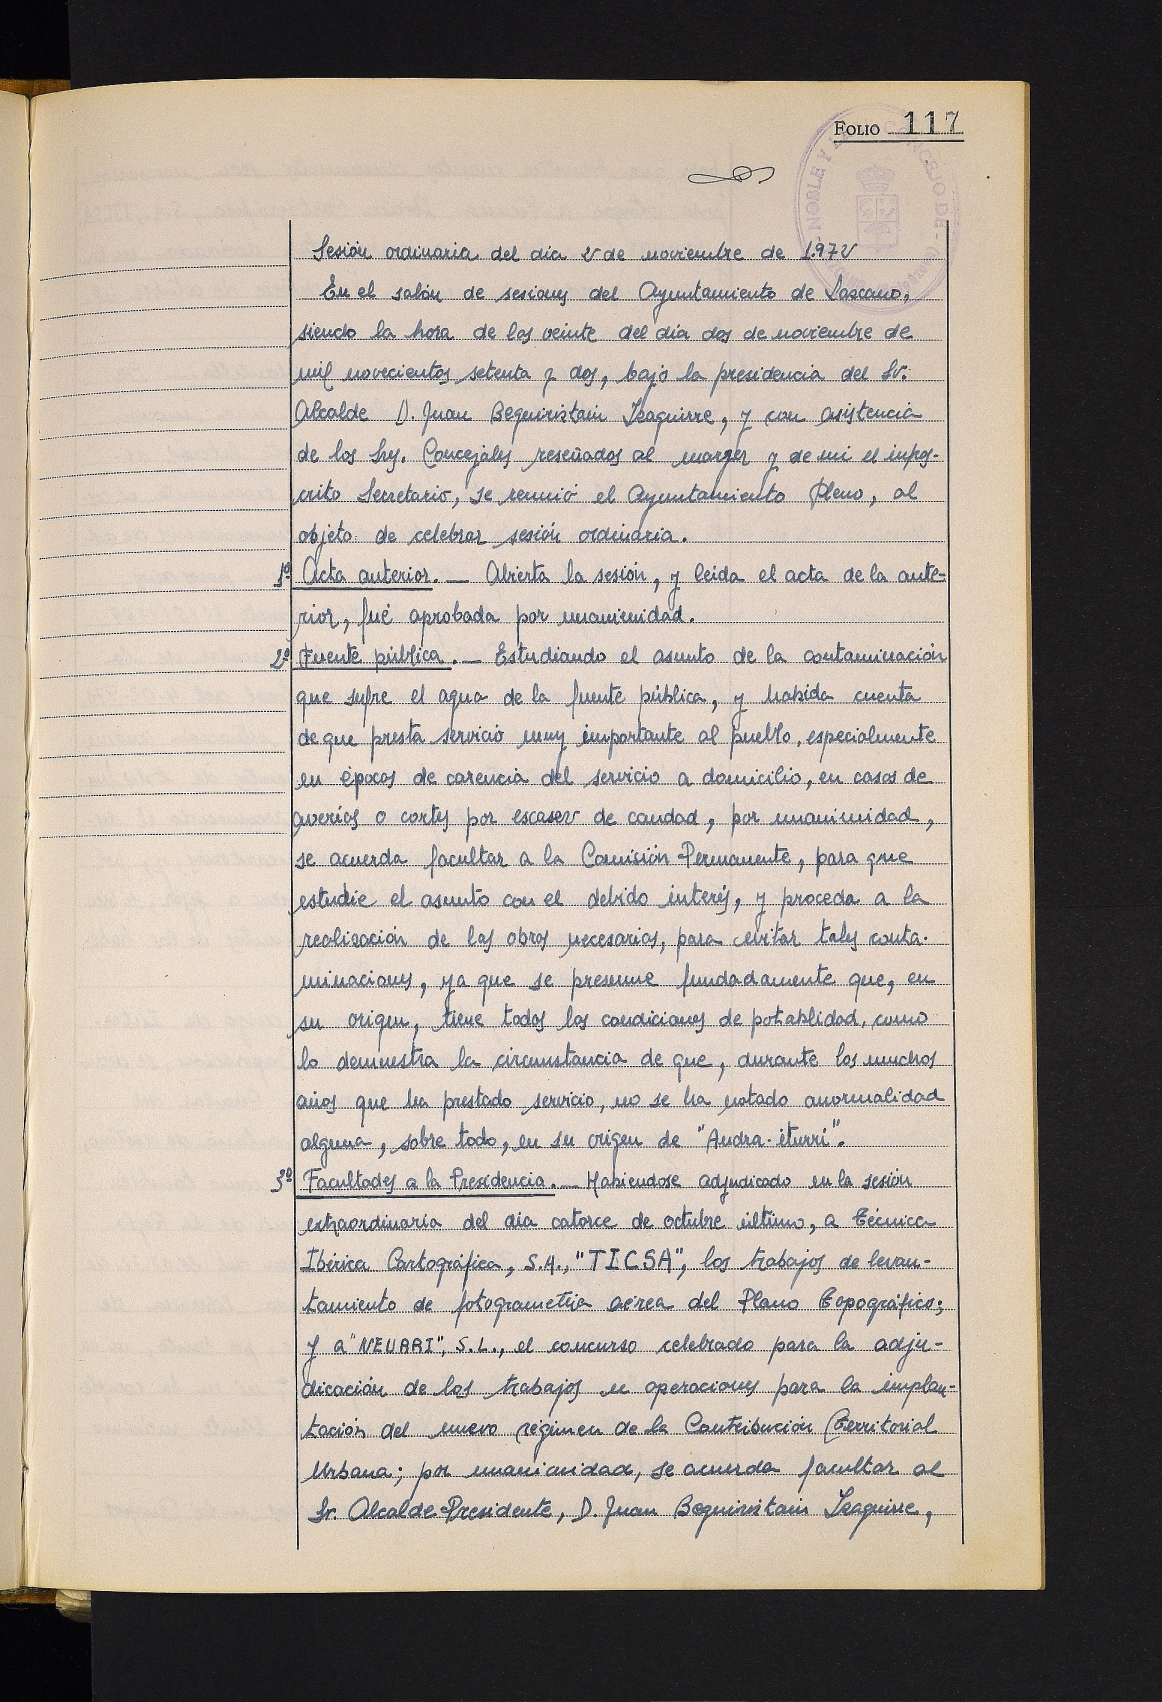 FOLIO 117
NOBLE Y CONCEJO DE
Sesión ordinaria del día 2 de noviembre de 1.972
En el salón de sesiones del Ayuntamiento de Lazcano,
siendo la hora de las veinte del día dos de noviembre de
mil novecientos setenta y dos, bajo la presidencia del Sr.
Alcalde D. Juan Beguiristain Izaguirre, y con asistencia
de los Srs. Concejales reseñados al margen y de mi el infros-
crito Secretario, se reunió el Ayuntamiento Pleno, al
objeto de celebrar sesión ordinaria.
1º Acta anterior. — Abierta la sesión, y leida el acta de la ante-
rior, fué aprobada por unanimidad.
2º Fuente pública. — Estudiando el asunto de la contaminación
que sufre el agua de la fuente pública, y habida cuenta
de que presta servicio muy importante al pueblo, especialmente
en épocas de carencia del servicio a domicilio, en casos de
averías o cortes por escasez de caudad, por unanimidad,
se acuerda facultar a la Comisión Permanente, para que
estudie el asunto con el debido interés, y proceda a la
realización de las obras necesarias, para evitar tales conta-
minaciones, ya que se presume fundadamente que, en
su origen, tiene todas las condiciones de potablidad, como
lo demuestra la circunstancia de que, durante los muchos
años que ha prestado servicio, no se ha notado anormalidad
alguna, sobre todo, en su origen de "Andra-iturri".
3º Facultades a la Presidencia. — Habiendose adjudicado en la sesión
extraordinaria del día catorce de octubre último, a Técnica
Ibérica Cartográfica, S.A., "TICSA", los trabajos de levan-
tamiento de fotogrametria aérea del Plano Topográfico;
y a "NEURRI", S.L., el concurso celebrado para la adju-
dicación de los trabajos u operaciones para la implan-
tación del nuevo régimen de la Contribución Territorial
Urbana; por unanimidad, se acuerda facultar al
Sr. Alcalde-Presidente, D. Juan Beguiristain Izaguirre,